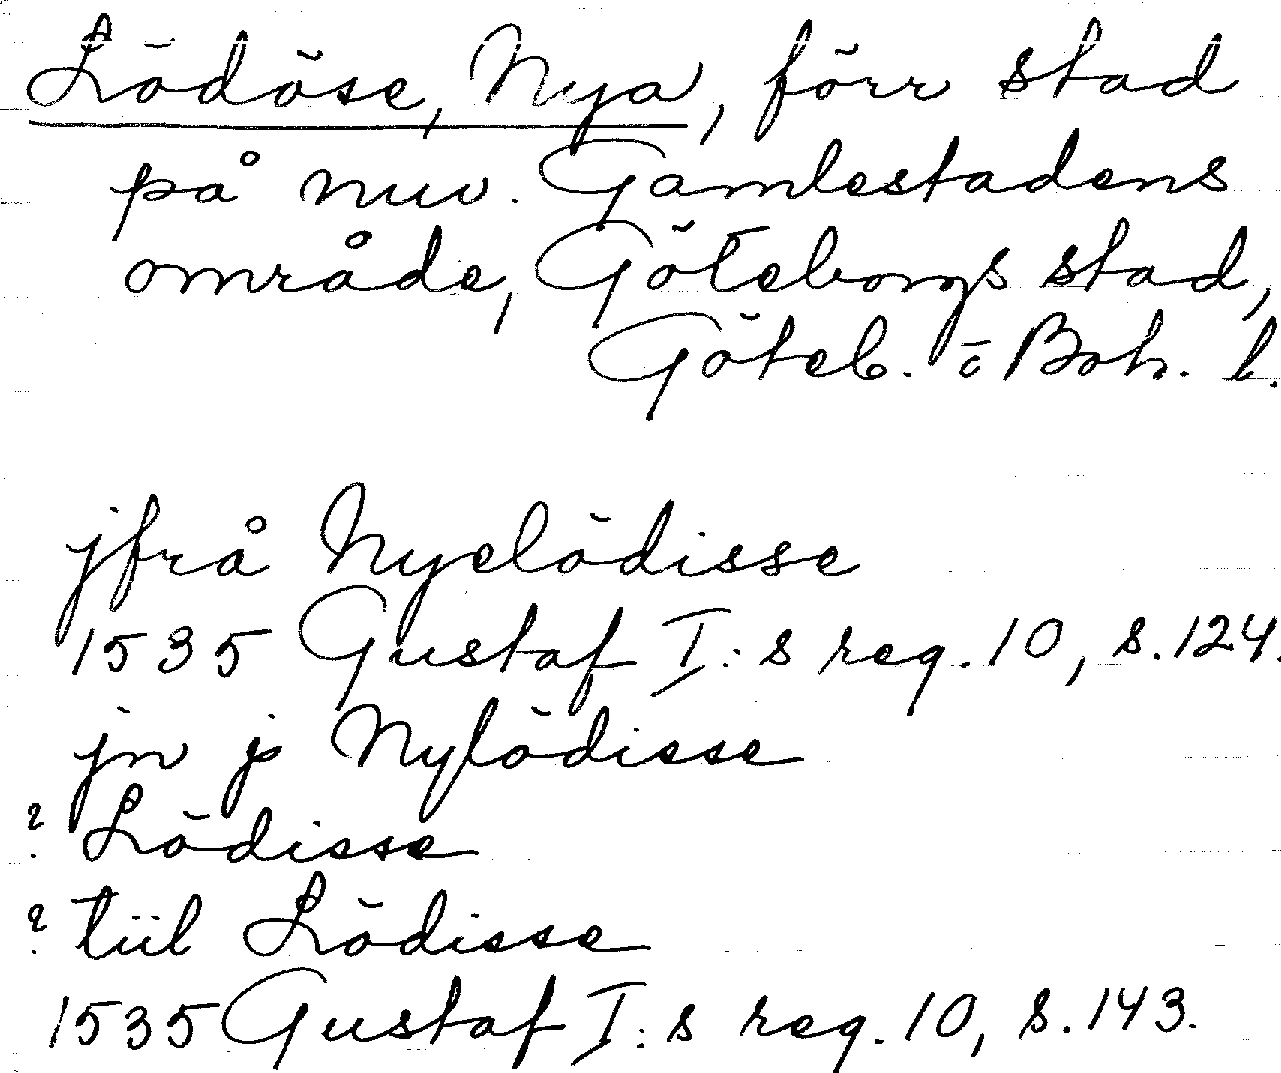 Lödöse, Nya, förr stad
på nuv. Gamlestadens
område, Göteborgs stad,
Göteb. o Boh. l.
jfrå Nyelödisse
1535 Gustaf I:s reg. 10, s. 124.
jn p Nylödisse
? Lödisse
? tiil Lödisse
1535 Gustaf I:s reg. 10, s. 143.